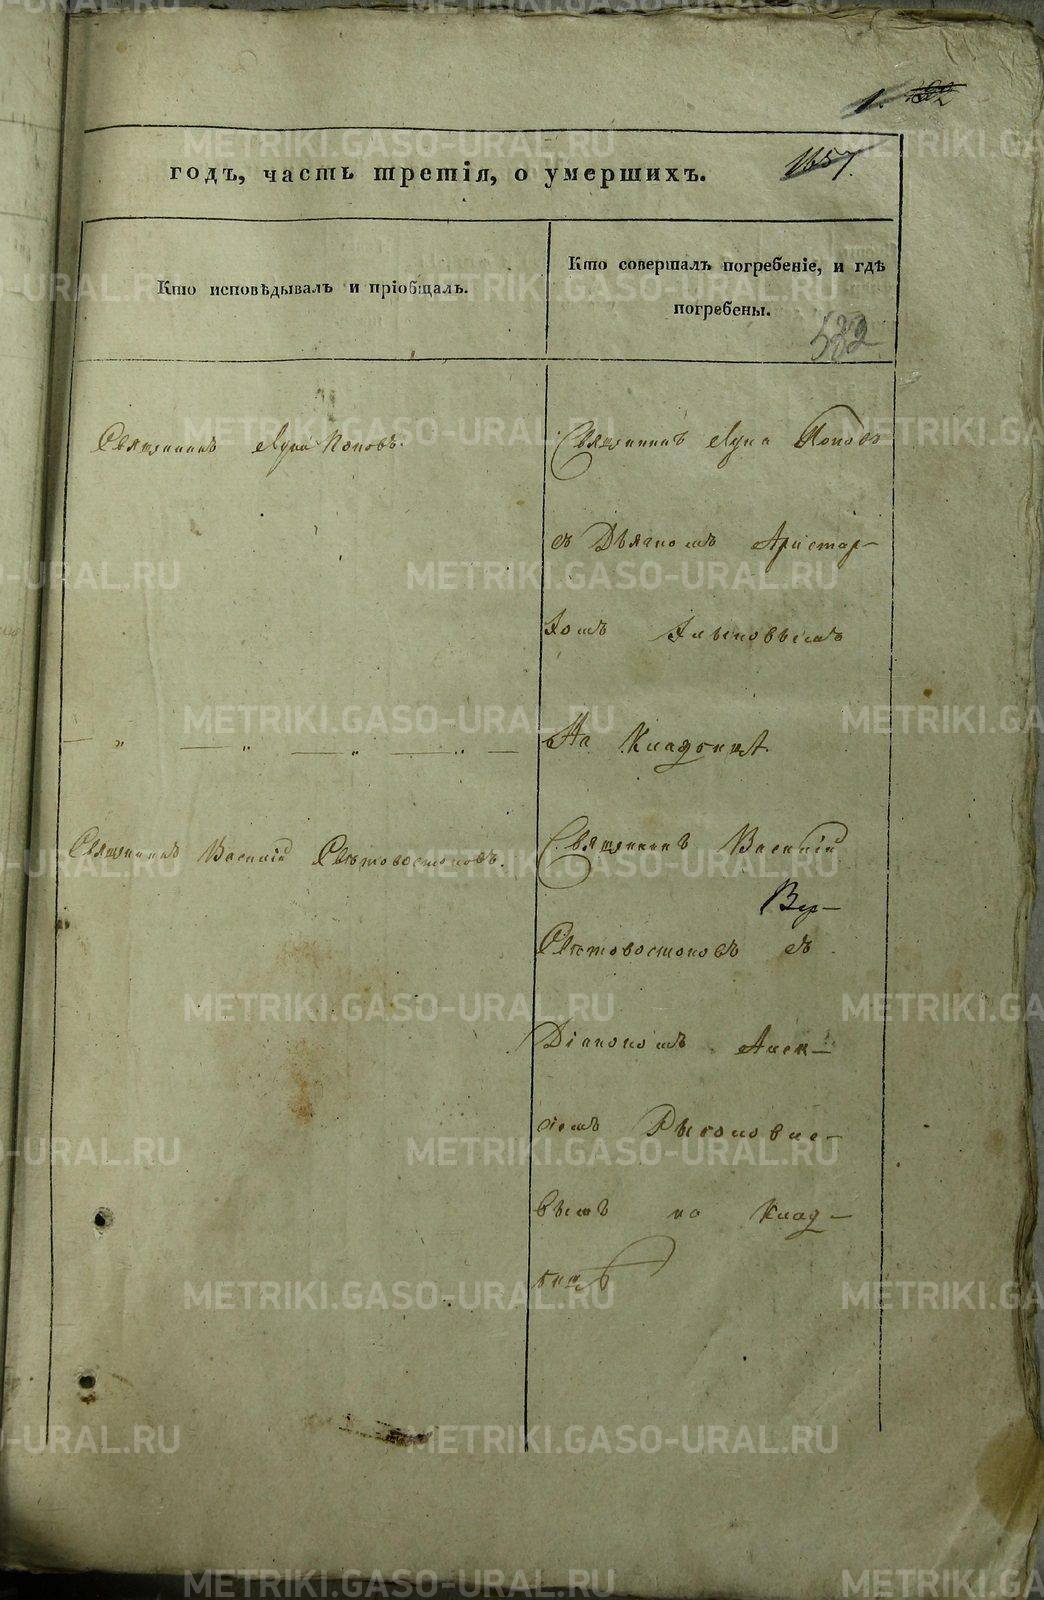 годъ, часть третія, о умершихъ.
1657.
Кто исповѣдывалъ и пріобщалъ.
Кто совершалъ погребеніе, и гдѣ
погребены.
532
Священникъ Лука Поповъ.
Священникъ Лука Поповъ
съ Дьячкомъ Аристар-
хомъ
На Кладбищѣ.
Священникъ Василій Свѣтовостоковъ.
Священникъ Василій
Свѣтовостоковъ съ
Діакономъ Алек-
вымъ на Клад-
бищѣ
METRIKI.GASO-URAL.RU